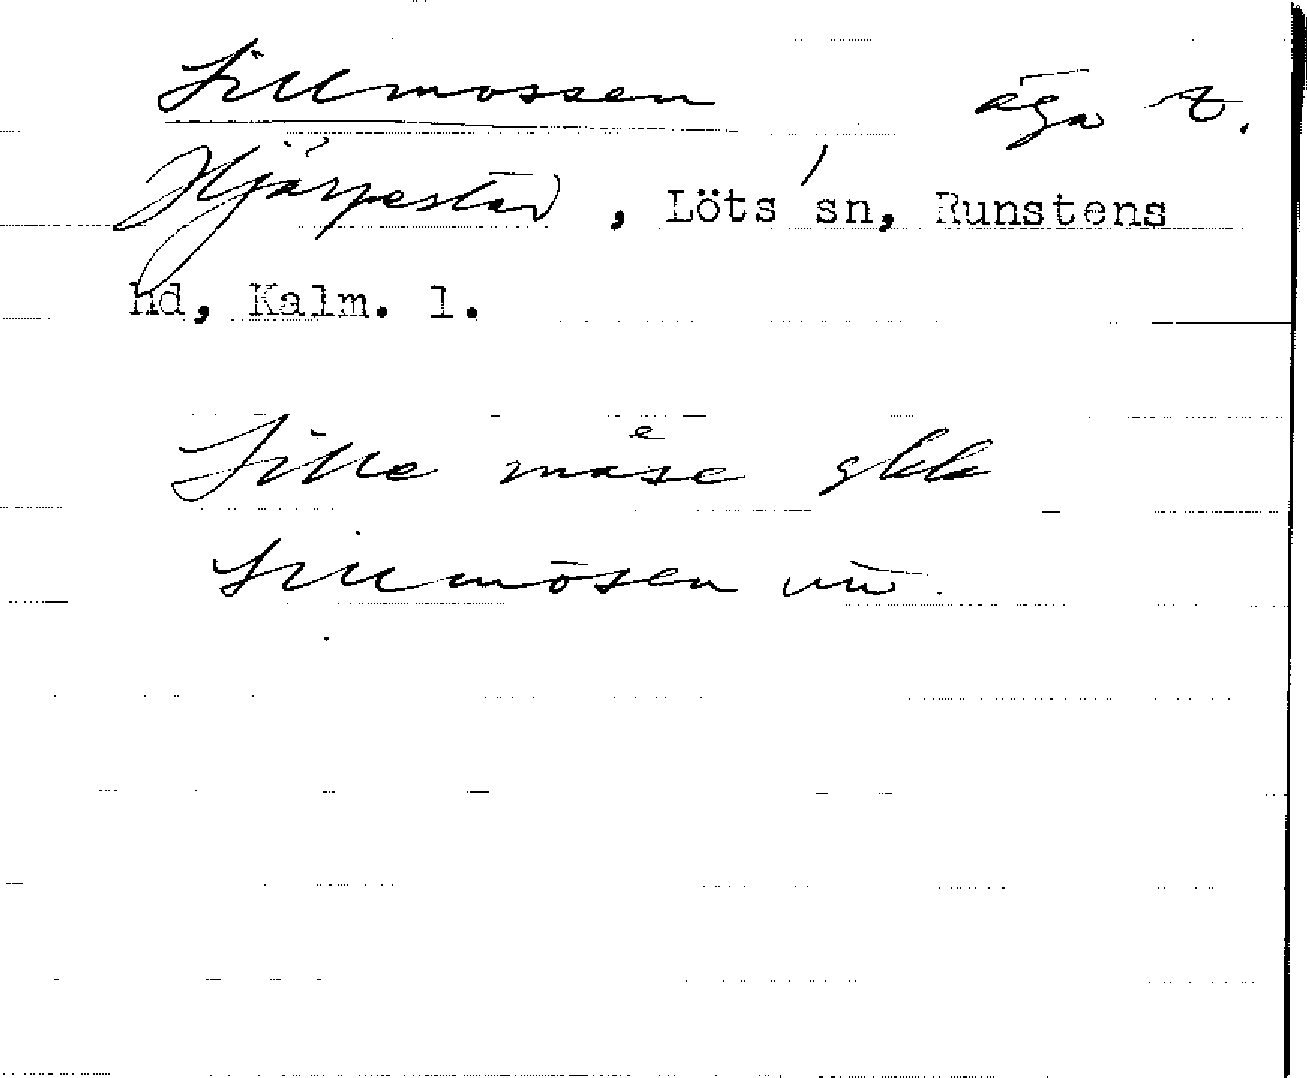 Sillmossen äga t.
Hjärpestad, Löts sn, Runstens
hd, Kalm. l.
Sille måse gkk
Sillmosen uu.